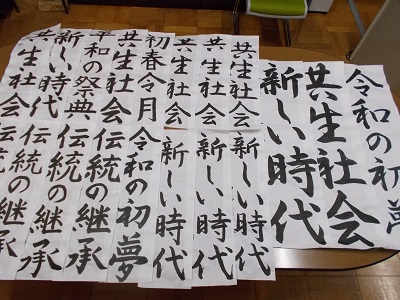 令和の初夢
共生社会
新しい時代
共生社会
共生社会
共生社会
初春令月
共生社会
平和の祭典
新しい時代
共生社会
新しい時代
新しい時代
新しい時代
令和の初夢
伝統の継承
伝統の継承
伝統の継承
伝統の継承